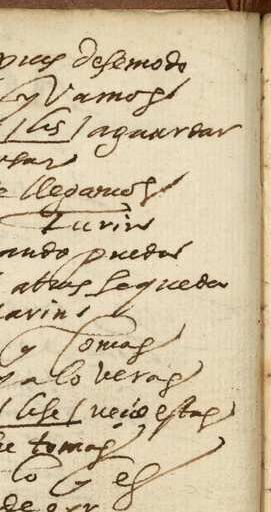 pues desemodo
y Vamos
lis aguardar
e llegamos
Turin
ando puedas
atras se queda
Marin
y tomas
ya lo veras
lise necio estas
he tomas
lo y es